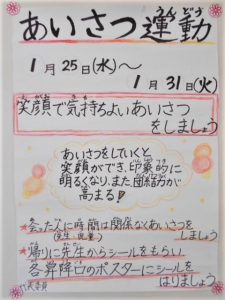 あいさつ運動
うんどう
1月25日(水)〜
1月31日(火)
笑顔で気持ちよいあいさつ
をしましょう
あいさつをしていくと
笑顔ができ、印象的に
明るくなり、また団結力が
高まる!
★会った人に時間は関係なくあいさつを
しましょう
★帰りに先生からシールをもらい
各昇降口のポスターにシールを
はりましょう
代表委員